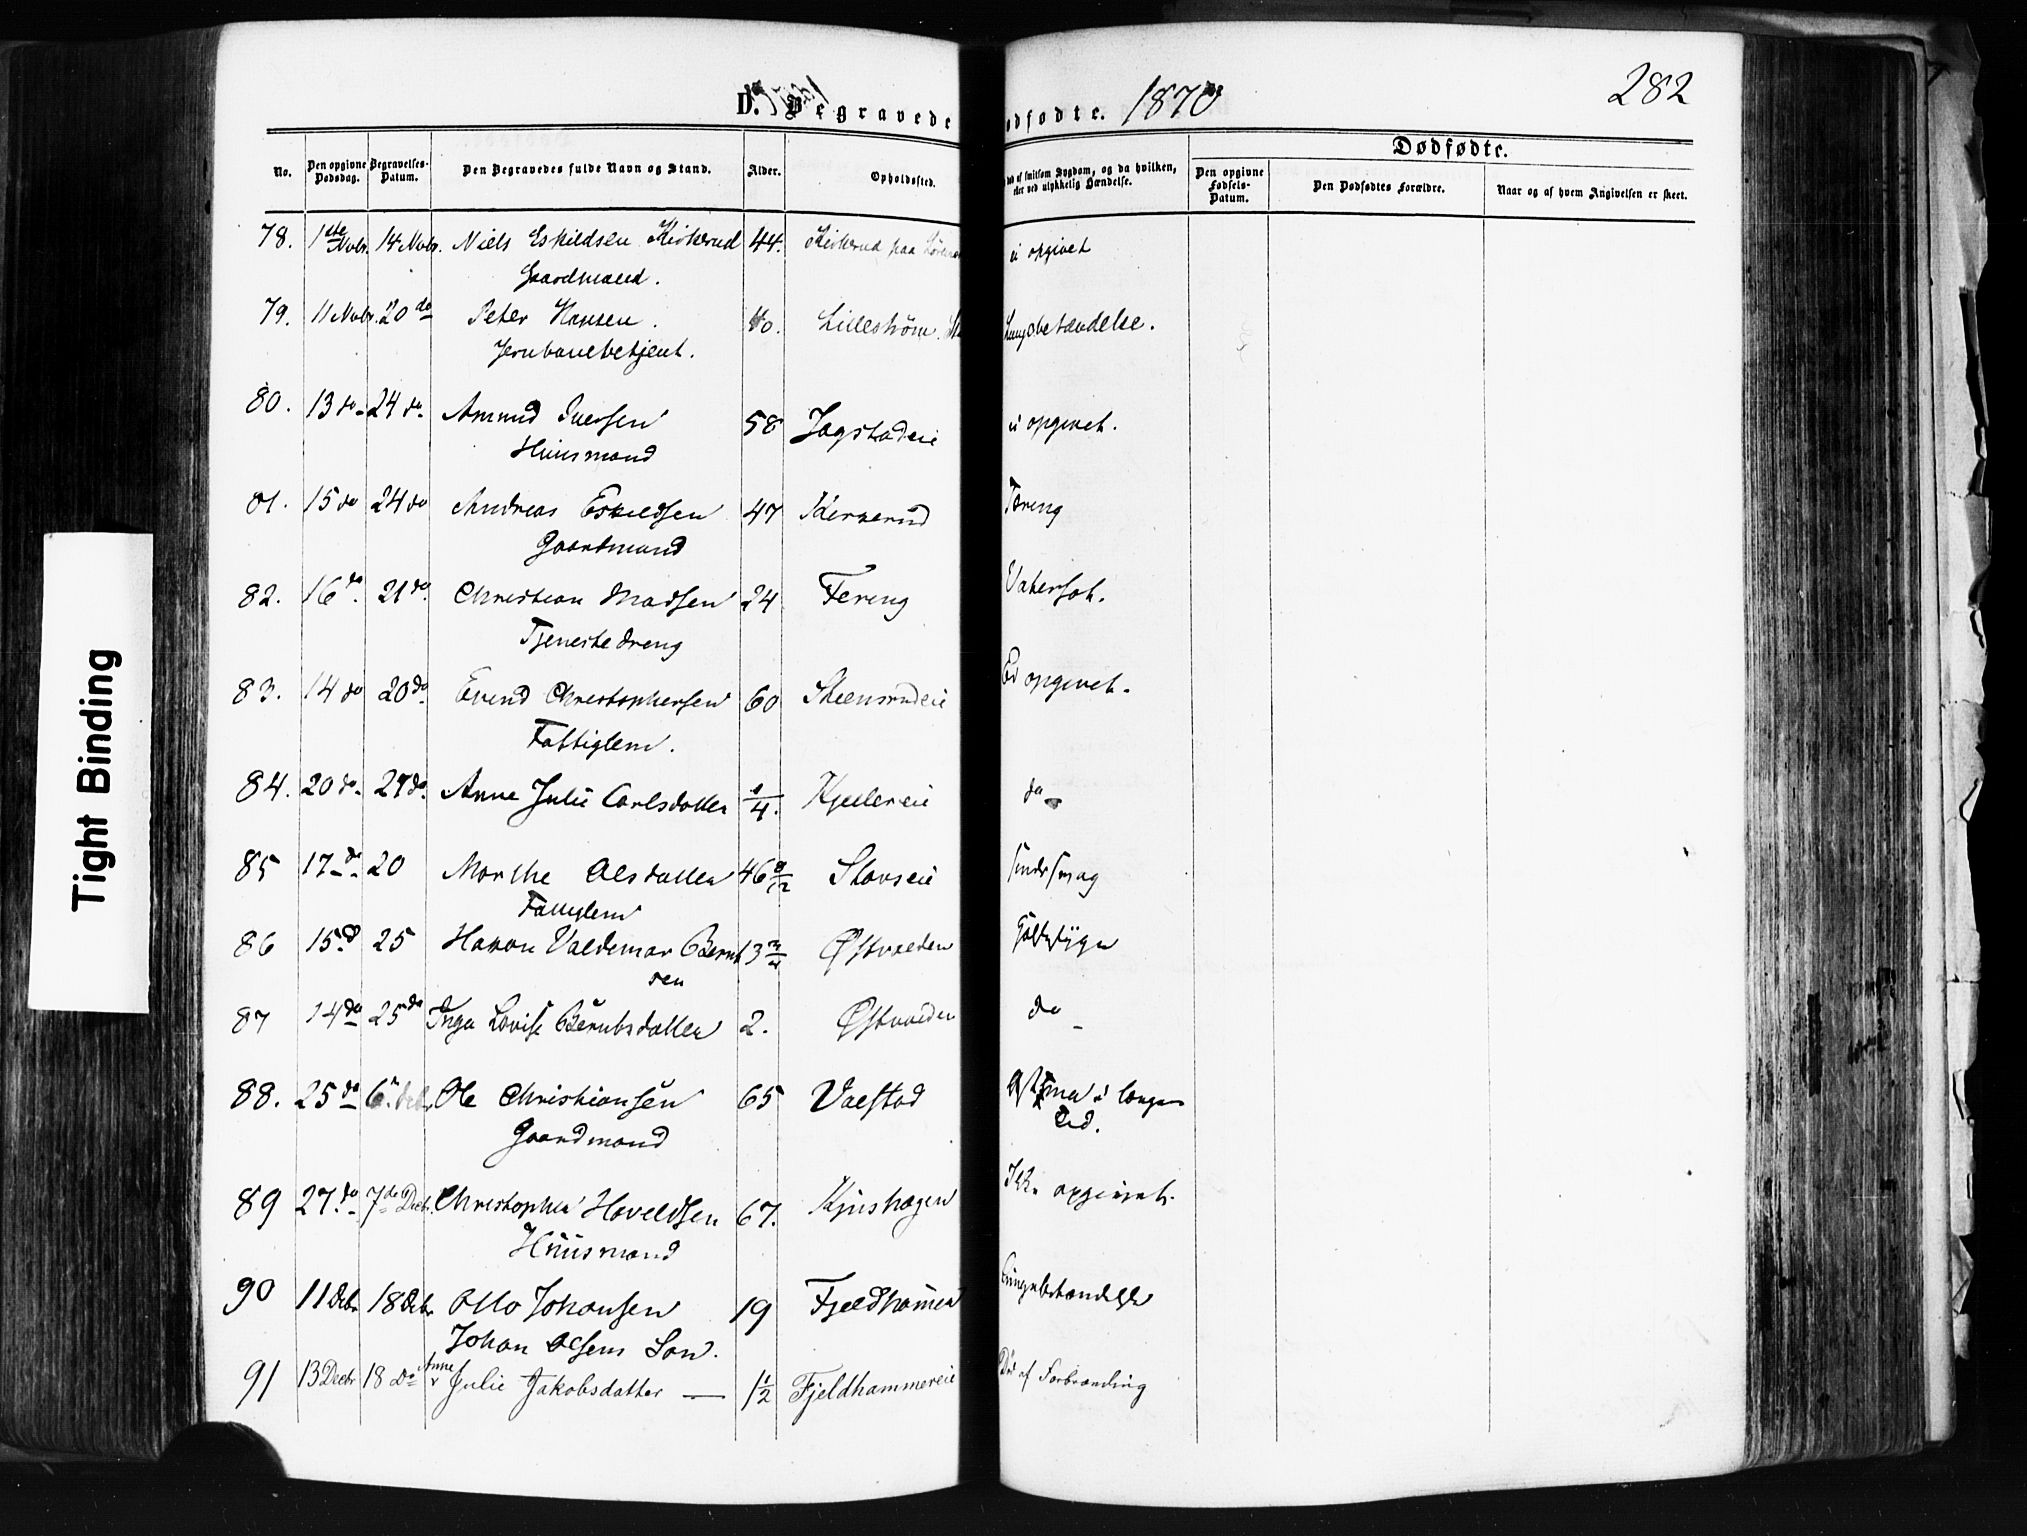 282
D. Begravede
ødfødte. 1870
Dødfødte.
No.
Den opgivne Dødsdag.
Begravelses-Datum.
Den Begravedes fulde Navn og Stand.
Alder.
Opholdssted.
død af smitsom Sygdom, og da hvilken, eller ved ulykkelig Hændelse.
Den opgivne Fødsels-Datum.
Den Dødfødtes Forældre.
Naar og af hvem Angivelsen er skeet.
78. 1ste Novbr. 14 Novbr. Niels Eskildsen Kirkerud 44. Kirkerud paa ei opgivet
Gaardmand.
79. 11 Novbr. 20 do Peter Hansen. 40. Lilleström. Lungebetændelse.
Jernbanebetjent.
80. 13 do 24 do Amund Iversen 58 Jogstadeie ei opgivet.
Huusmand
81. 15 do 24 do Andreas Eskildsen 47 Kirkerud Tæring
Gaardmand
82. 16 do 21 do. Christian Madsen 24 Tering Vatersot.
Tjenestedreng
83. 14 do 20 do. Evend Christophersen 60 Steensrudeie Ei opgivet.
Fattiglem.
84. 20 do. 27 do. Anne Julie Carlsdatter 1/4. Kjellereie do
85 17 do 20 Marthe Olsdatter 46 Stavseie sindssvag
Fattiglem
86 15 d 25 Hakon Valdemar Bernt 13 Østvolden
sen
87 14 do 25 do Inga Lovise Berntsdatter 2. Østvolden do
88. 25 do 6 debr. Ole Christiansen 65 Valstad Astma i længere
Tid.
Gaardmand
89 27 do 7de Decbr. Christopher Haveldsen 67. Kjushagen Ikke opgivet.
Huusmand
90 11 Debr 18 Debr Otto Johansen 19 Fjeldhamer Lungebetændelse
Johan Olsens Søn.
91 13 Decbr 18 Do Anne
Julie Jakobsdatter — 1 1/2 Fjeldhammereie Død af Forbrænding
Tight Binding